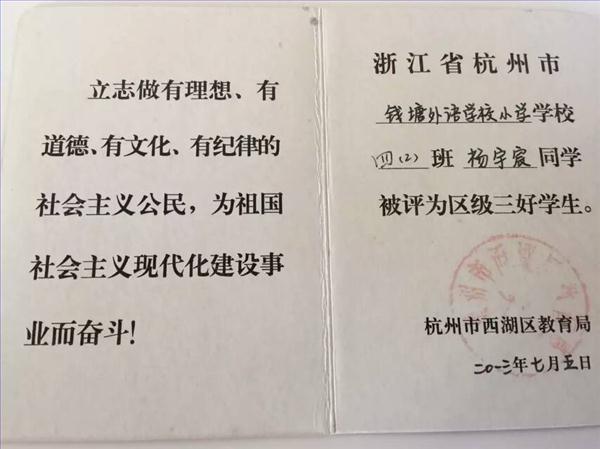 立志做有理想、有
道德、有文化、有纪律的
社会主义公民，为祖国
社会主义现代化建设事
业而奋斗！
浙江省杭州市
钱塘外语学校小学学校
四(2)班杨宇宸同学
被评为区级三好学生。
杭州市西湖区教育局
二〇一三年七月五日